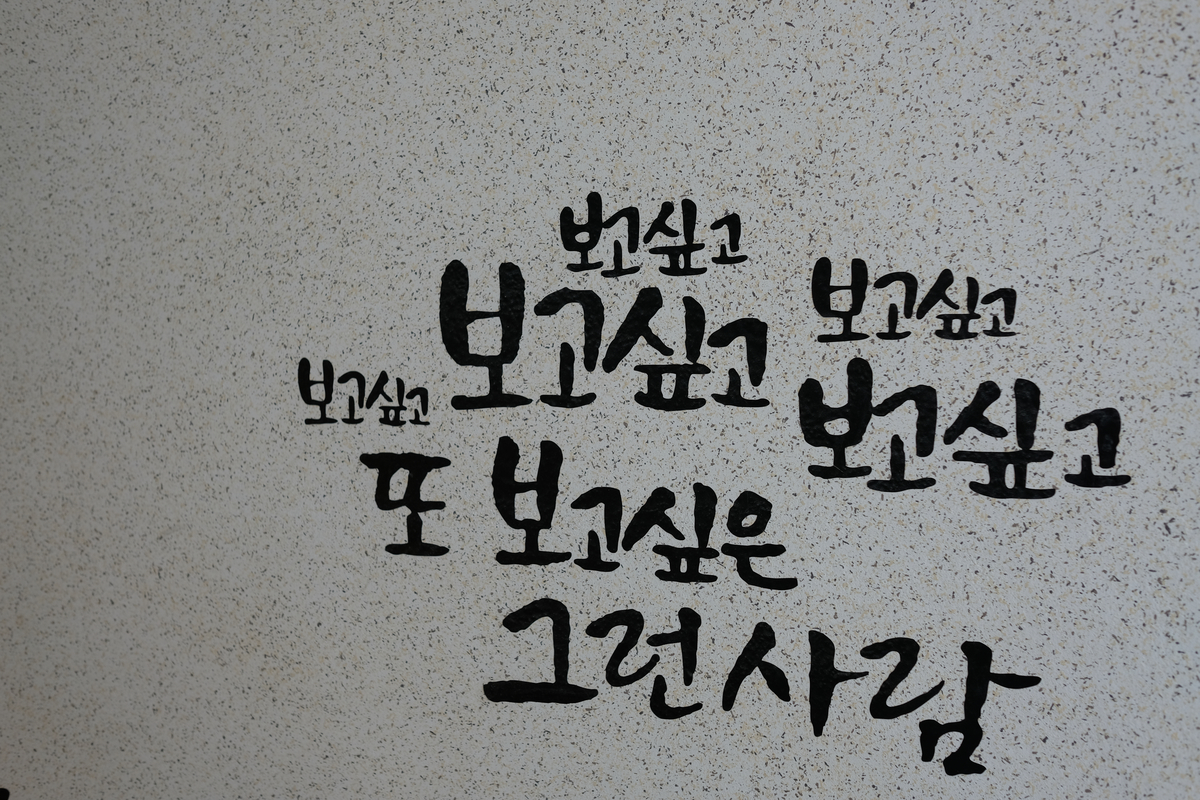 보고싶고
보고싶고
보고싶고
보고싶고
보고싶고
또 보고싶은
그런사람